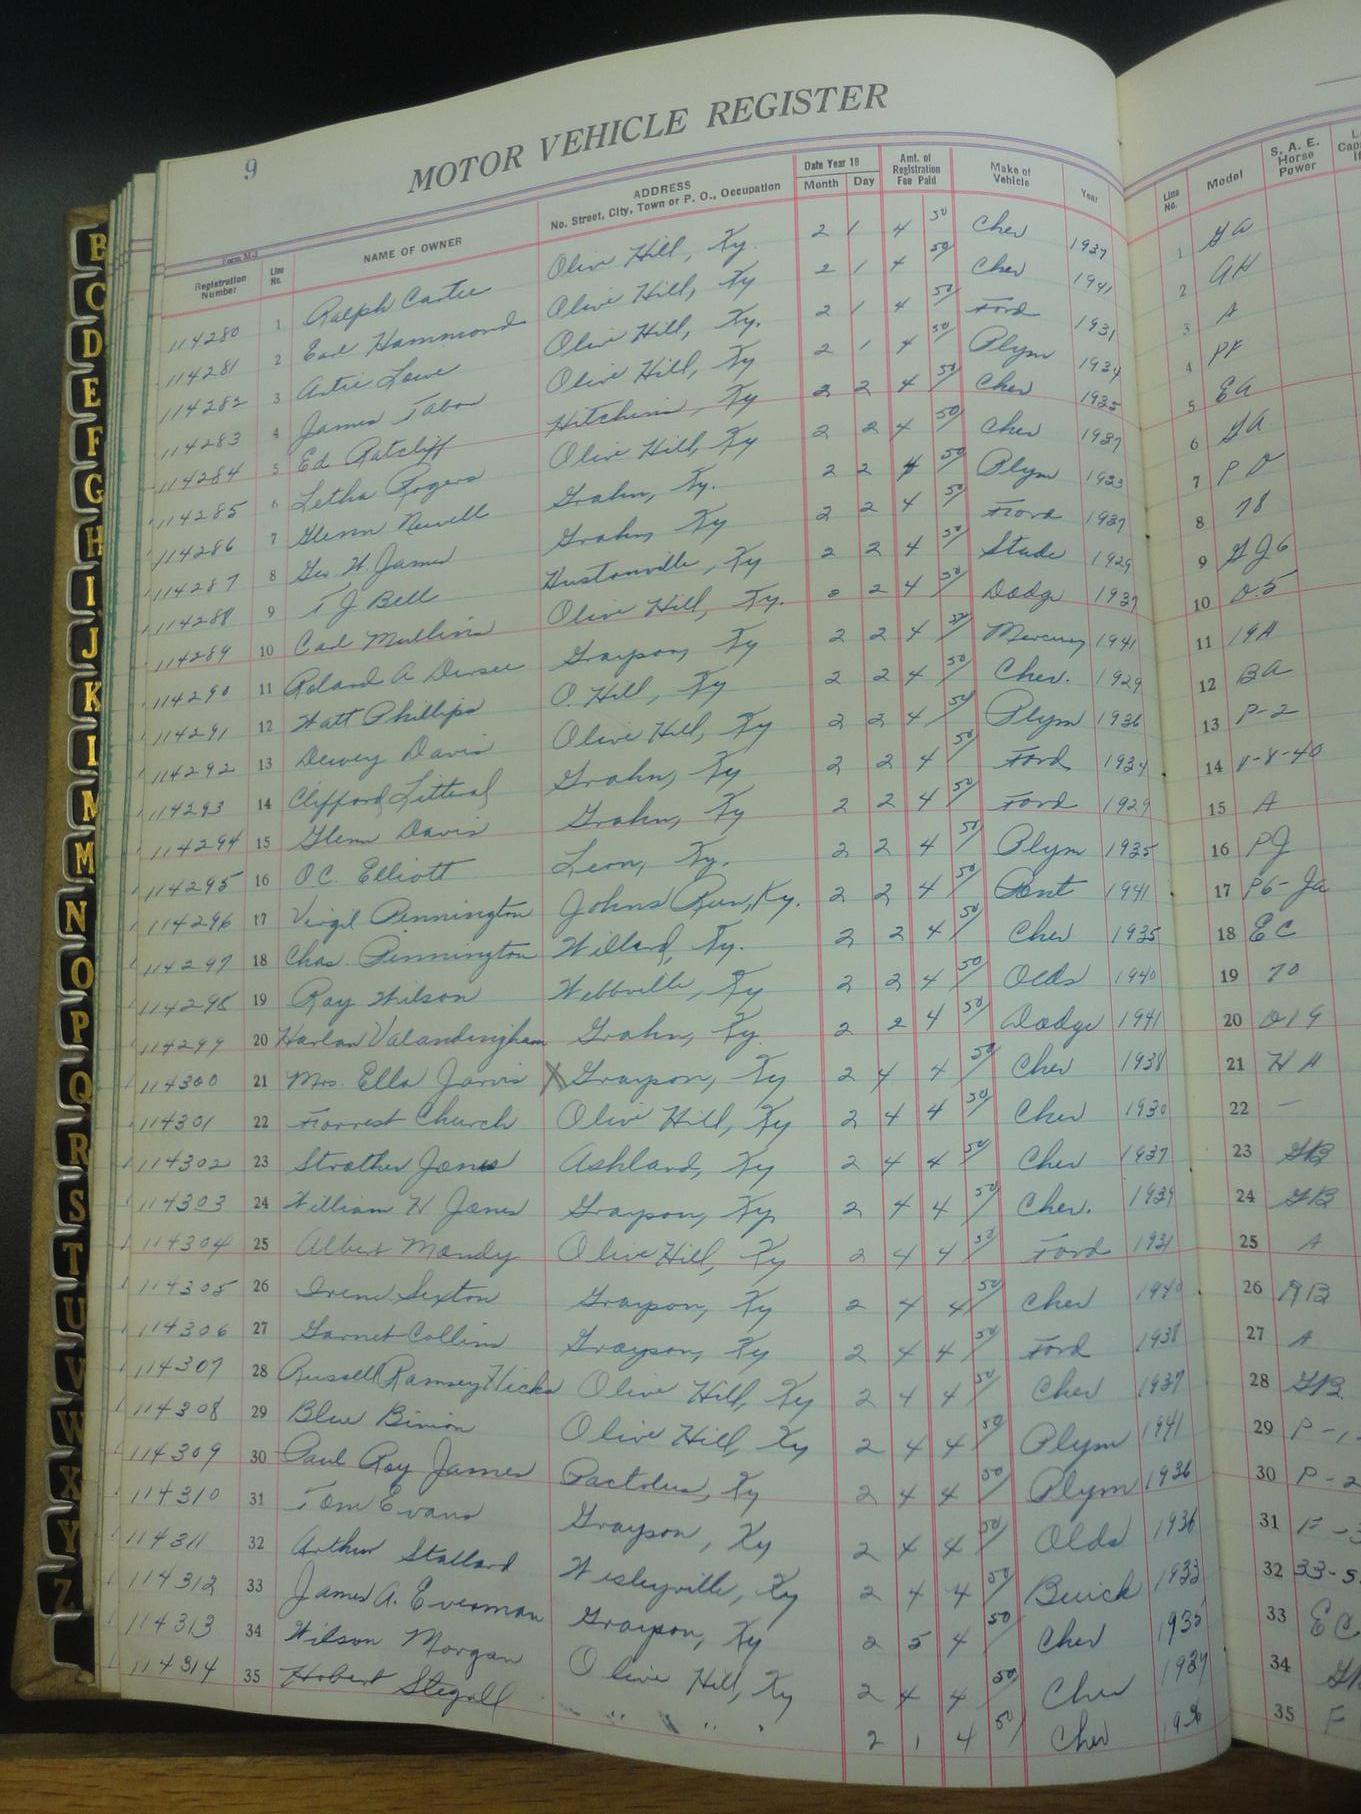 9
MOTOR VEHICLE REGISTER
Form M-3
Registration Number Line No. NAME OF OWNER ADDRESS No. Street, City, Town or P. O., Occupation Date Year 19 Month Day Amt. of Registration Fee Paid Make of Vehicle Year Line No. Model S. A. E. Horse Power
114280 1 Ralph Carter Olive Hill, Ky. 2 1 4 50 Chev 1937 1 GA
114281 2 Earl Hammond Olive Hill, Ky 2 1 4 50 Chev 1941 2 AH
114282 3 Artie Lowe Olive Hill, Ky. 2 1 4 50 Ford 1931 3 A
114283 4 James Tabor Olive Hill, Ky 2 1 4 50 Plym 1934 4 PF
114284 5 Ed Ratcliff Hitchins, Ky 2 2 4 50 Chev 1935 5 EA
114285 6 Letha Rogers Olive Hill, Ky 2 2 4 50 Chev 1937 6 GA
114286 7 Glenn Newell Grahn, Ky. 2 2 4 50 Plym 1933 7 PD
114287 8 Geo W. James Grahn, Ky 2 2 4 50 Ford 1937 8 78
114288 9 T J Bell Hustonville, Ky 2 2 4 50 Stude 1929 9 GJ6
114289 10 Carl Mullins Olive Hill, Ky. 2 4 50 Dodge 1937 10 D.5
114290 11 Roland A Grayson, Ky 2 2 4 50 Mercury 1941 11 19A
114291 12 Watt Phillips O. Hill, Ky 2 2 4 50 Chev. 1929 12 BA
114292 13 Dewey Davis Olive Hill, Ky 2 2 4 50 Plym 1936 13 P-2
114293 14 Clifford Litteral Grahn, Ky 2 2 4 50 Ford 1934 14 V-8-40
114294 15 Glenn Davis Grahn, Ky 2 2 4 50 Ford 1929 15 A
114295 16 O.C. Elliott Leon, Ky. 2 2 4 50 Plym 1935 16 PJ
114296 17 Virgil Pennington Johns Run, Ky. 2 2 4 50 Pont 1941 17 P6-Ja
114297 18 Chas. Pennington Willard, Ky. 2 2 4 50 Chev 1935 18 EC
114298 19 Roy Wilson Webbville, Ky 2 2 4 50 Olds 1940 19 70
114299 20 Harlan Valandingham Grahn, Ky. 2 2 4 50 Dodge 1941 20 D19
114300 21 Mrs. Ella Jarvis X Grayson, Ky 2 4 4 50 Chev 1938 21 HA
114301 22 Forrest Church Olive Hill, Ky 2 4 4 50 Chev 1930 22 -
114302 23 Strother Jones Ashland, Ky 2 4 4 50 Chev 1937 23 GB
114303 24 William H Jones Grayson, Ky 2 4 4 50 Chev. 1937 24 GB
114304 25 Albert Mandy Olive Hill, Ky 2 4 4 50 Ford 1931 25 A
114305 26 Irene Sexton Grayson, Ky 2 4 4 50 Chev 1940 26
114306 27 Garnet Collins Grayson, Ky 2 4 4 50 Ford 27 A
114307 28 Russell Ramsey Hicks Olive Hill, Ky 2 4 4 50 Chev 1937 28 GB
114308 29 Blue Binion Olive Hill, Ky 2 4 4 50 Plym 1941 29 P-1
114309 30 Paul Roy James Pactolus, Ky 2 4 4 50 Plym 1936 30 P-2
114310 31 Tom Evans Grayson, Ky 2 4 4 50 Olds 1936 31 F-3
114311 32 Arthur Stallard Wesleyville, Ky 2 4 4 50 Buick 1933 32 33-5
114312 33 James A. Everman Grayson, Ky 2 5 4 50 Chev 1935 33 EC
114313 34 Wilson Morgan Olive Hill, Ky 2 4 4 50 Chev 1937 34
114314 35 Hobert Stegall " " 2 1 4 50 Chev 35 F
B
C
D
E
F
G
H
I
J
K
M
N
O
P
Q
R
S
T
U
V
W
X
Y
Z